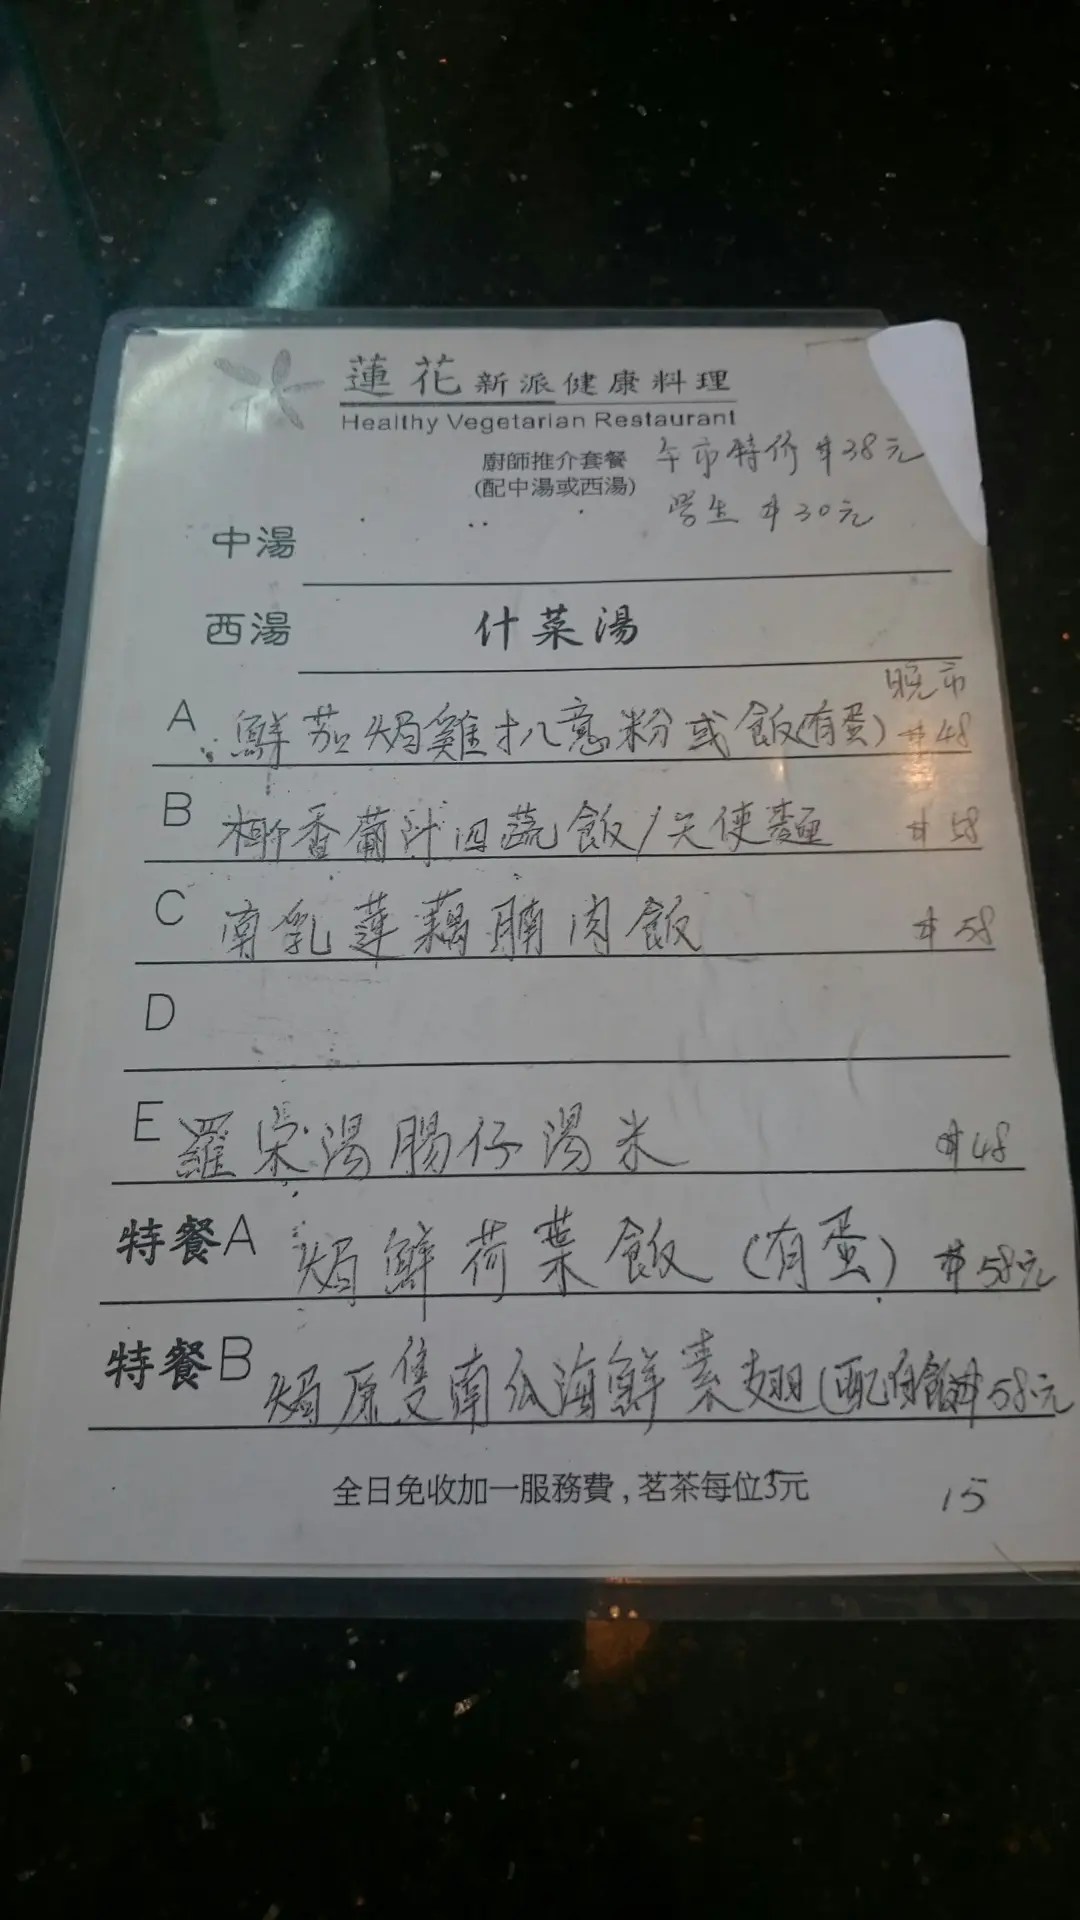 蓮花新派健康料理
Healthy Vegetarian Restaurant
廚師推介套餐 午市特价 $38元
(配中湯或西湯) 学生 $30元
中湯
西湯 什菜湯
晚市
A 鮮茄焗雞扒意粉或飯(有蛋) $48
B 椰香葡汁四蔬飯/天使麵 $58
C 南乳蓮藕腩肉飯 $58
D
E 羅宋湯腸仔湯米 $48
特餐A 焗鮮荷葉飯(有蛋) $58元
特餐B 焗原隻南瓜海鮮素翅(配白飯) $58元
全日免收加一服務費,茗茶每位3元
15